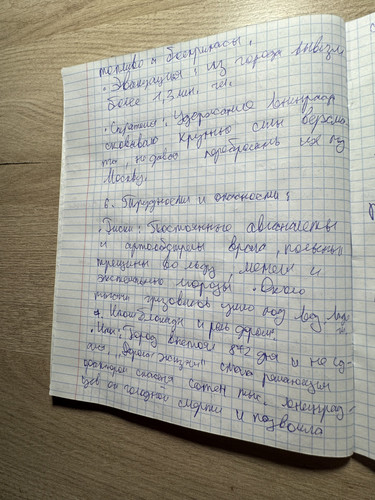 топливо и боеприпасы.
• Эвакуация: из города вывезли
более 1,3 млн. чел.
• Стратегия: Удержание Ленинграда
сковывало крупные силы вермах
та, не давая перебросить их под
Москву.
6. Трудности и опасности:
• Риски: Постоянные авианалёты
и артобстрелы врага,
трещины во льду, метели и
экстремальные морозы. Около
тысячи грузовиков ушло под лёд.
Итог блокады и роль дороги.
• Итог: Город выстоял 872 дня и не сд-
ался, "Дорога жизни" стала решающим
фактором спасения сотен тыс. ленинград-
цев от голодной смерти и позволила